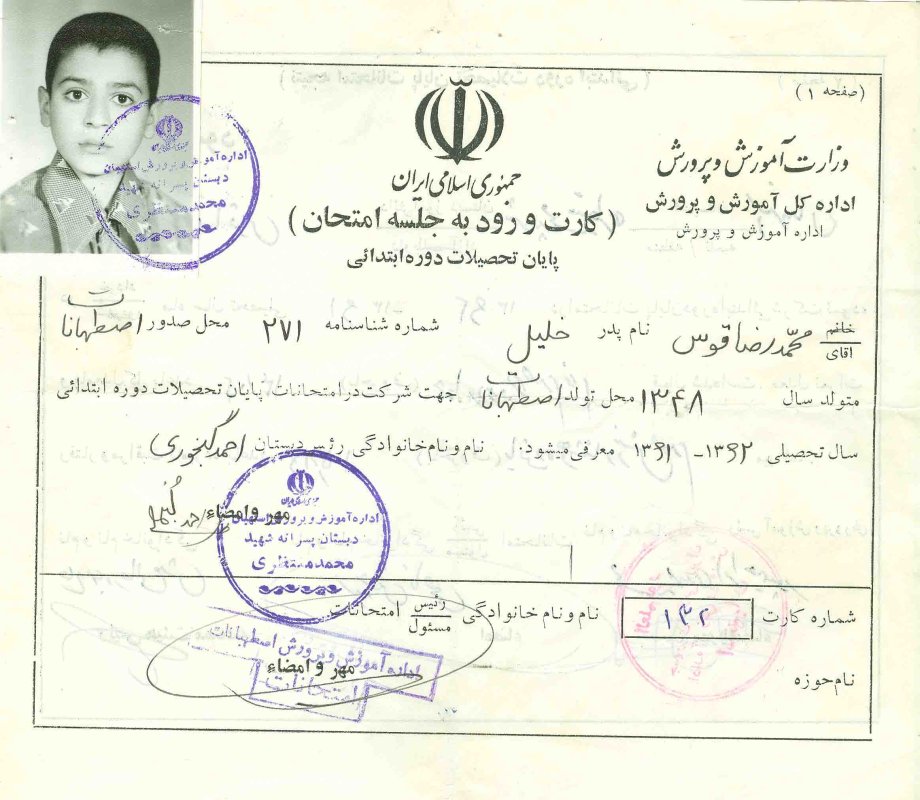 (صفحه ۱)
جمهوری اسلامی ایران
وزارت آموزش و پرورش
اداره کل آموزش و پرورش
اداره آموزش و پرورش
(کارت ورود به جلسه امتحان)
پایان تحصیلات دوره ابتدائی
اداره آموزش و پرورش اصطهبان
دبستان پسرانه شهید
محمد منتظری
خانم
آقای محمدرضا قوس نام پدر خلیل شماره شناسنامه ۲۷۱ محل صدور اصطهبانات
متولد سال ۱۳۴۸ محل تولد اصطهبانات جهت شرکت در امتحانات پایان تحصیلات دوره ابتدائی
سال تحصیلی ۱۳۶۲-۱۳۶۱ معرفی میشود. نام و نام خانوادگی رئیس دبستان احمد گنجوری
مهر و امضاء
اداره آموزش و پرورش اصطهبان
دبستان پسرانه شهید
محمد منتظری
شماره کارت ۱۳۲ نام و نام خانوادگی رئیس مسئول امتحانات
اداره آموزش و پرورش اصطهبانات
امتحانات
مهر و امضاء
نام حوزه